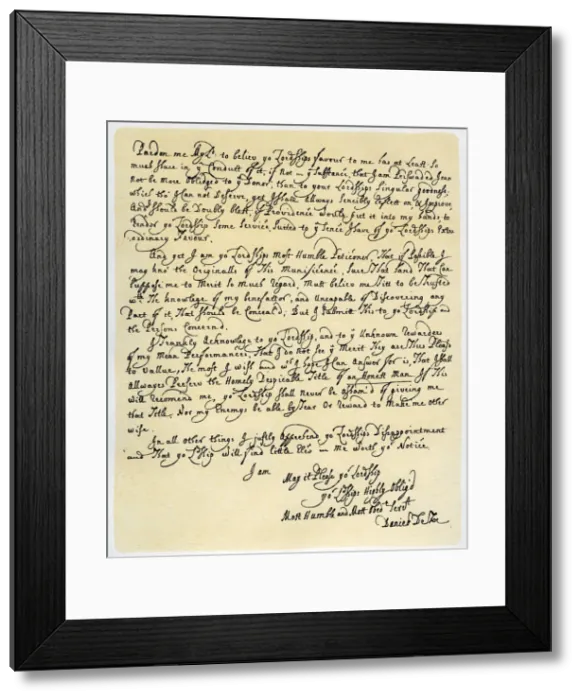 Pardon me My Ld. to believ yor Lordships favour to me has at least So
much share in ye Conduct of it, if not in ye Substance, that I am Perswaded I can
not be more Obliged to ye Donor, than to your Lordships Singular goodness,
which tho I Can not Deserv, yet I shall allways Sensibly Reflect on & Improve
And should be Doubly blest, if Providence would put it into my hands, to
render yor Lordship Some Service Suited to ye Sence I have of yor Lordships Extra
ordinary Favour.
And yet I am yor Lordships Most Humble Peticoner, That if Possible I
may kno the Originalls of This Munificence, Sure That hand That Can
Suppose me to Merit So much Regard, Must believ me Fitt to be Trusted
with The knowledge of my benefactor, and Uncapable of Discovering any
Part of it, That should be Conceal'd; But I Submitt This to yor Lordship and
the Persons Concern'd.
I Frankly Acknowlege to yor Lordship, and to ye Unknown Rewarders
of my Mean Performances, That I do not See ye Merit They are Thus Pleasd
to Vallue, The most I wish and wch I hope I Can Answer for is, That I shall
allwayes Preserv the Homely Despicable Title of an Honest Man. If This
will Recomend me, yor Lordship shall Never be asham'd of giveing me
that Title, Nor my Enemys be able by Fear Or Reward to Make me other
wise.
In all other things I justly Apprehend yor Lordships Disappointment
and That yor Lship will find little Else in Me worth yor Notice.
I am
May it Please yor Lordship
yor Lships Highly Oblig'd
Most Humble and Most Obedt. Servt
Daniel De Foe